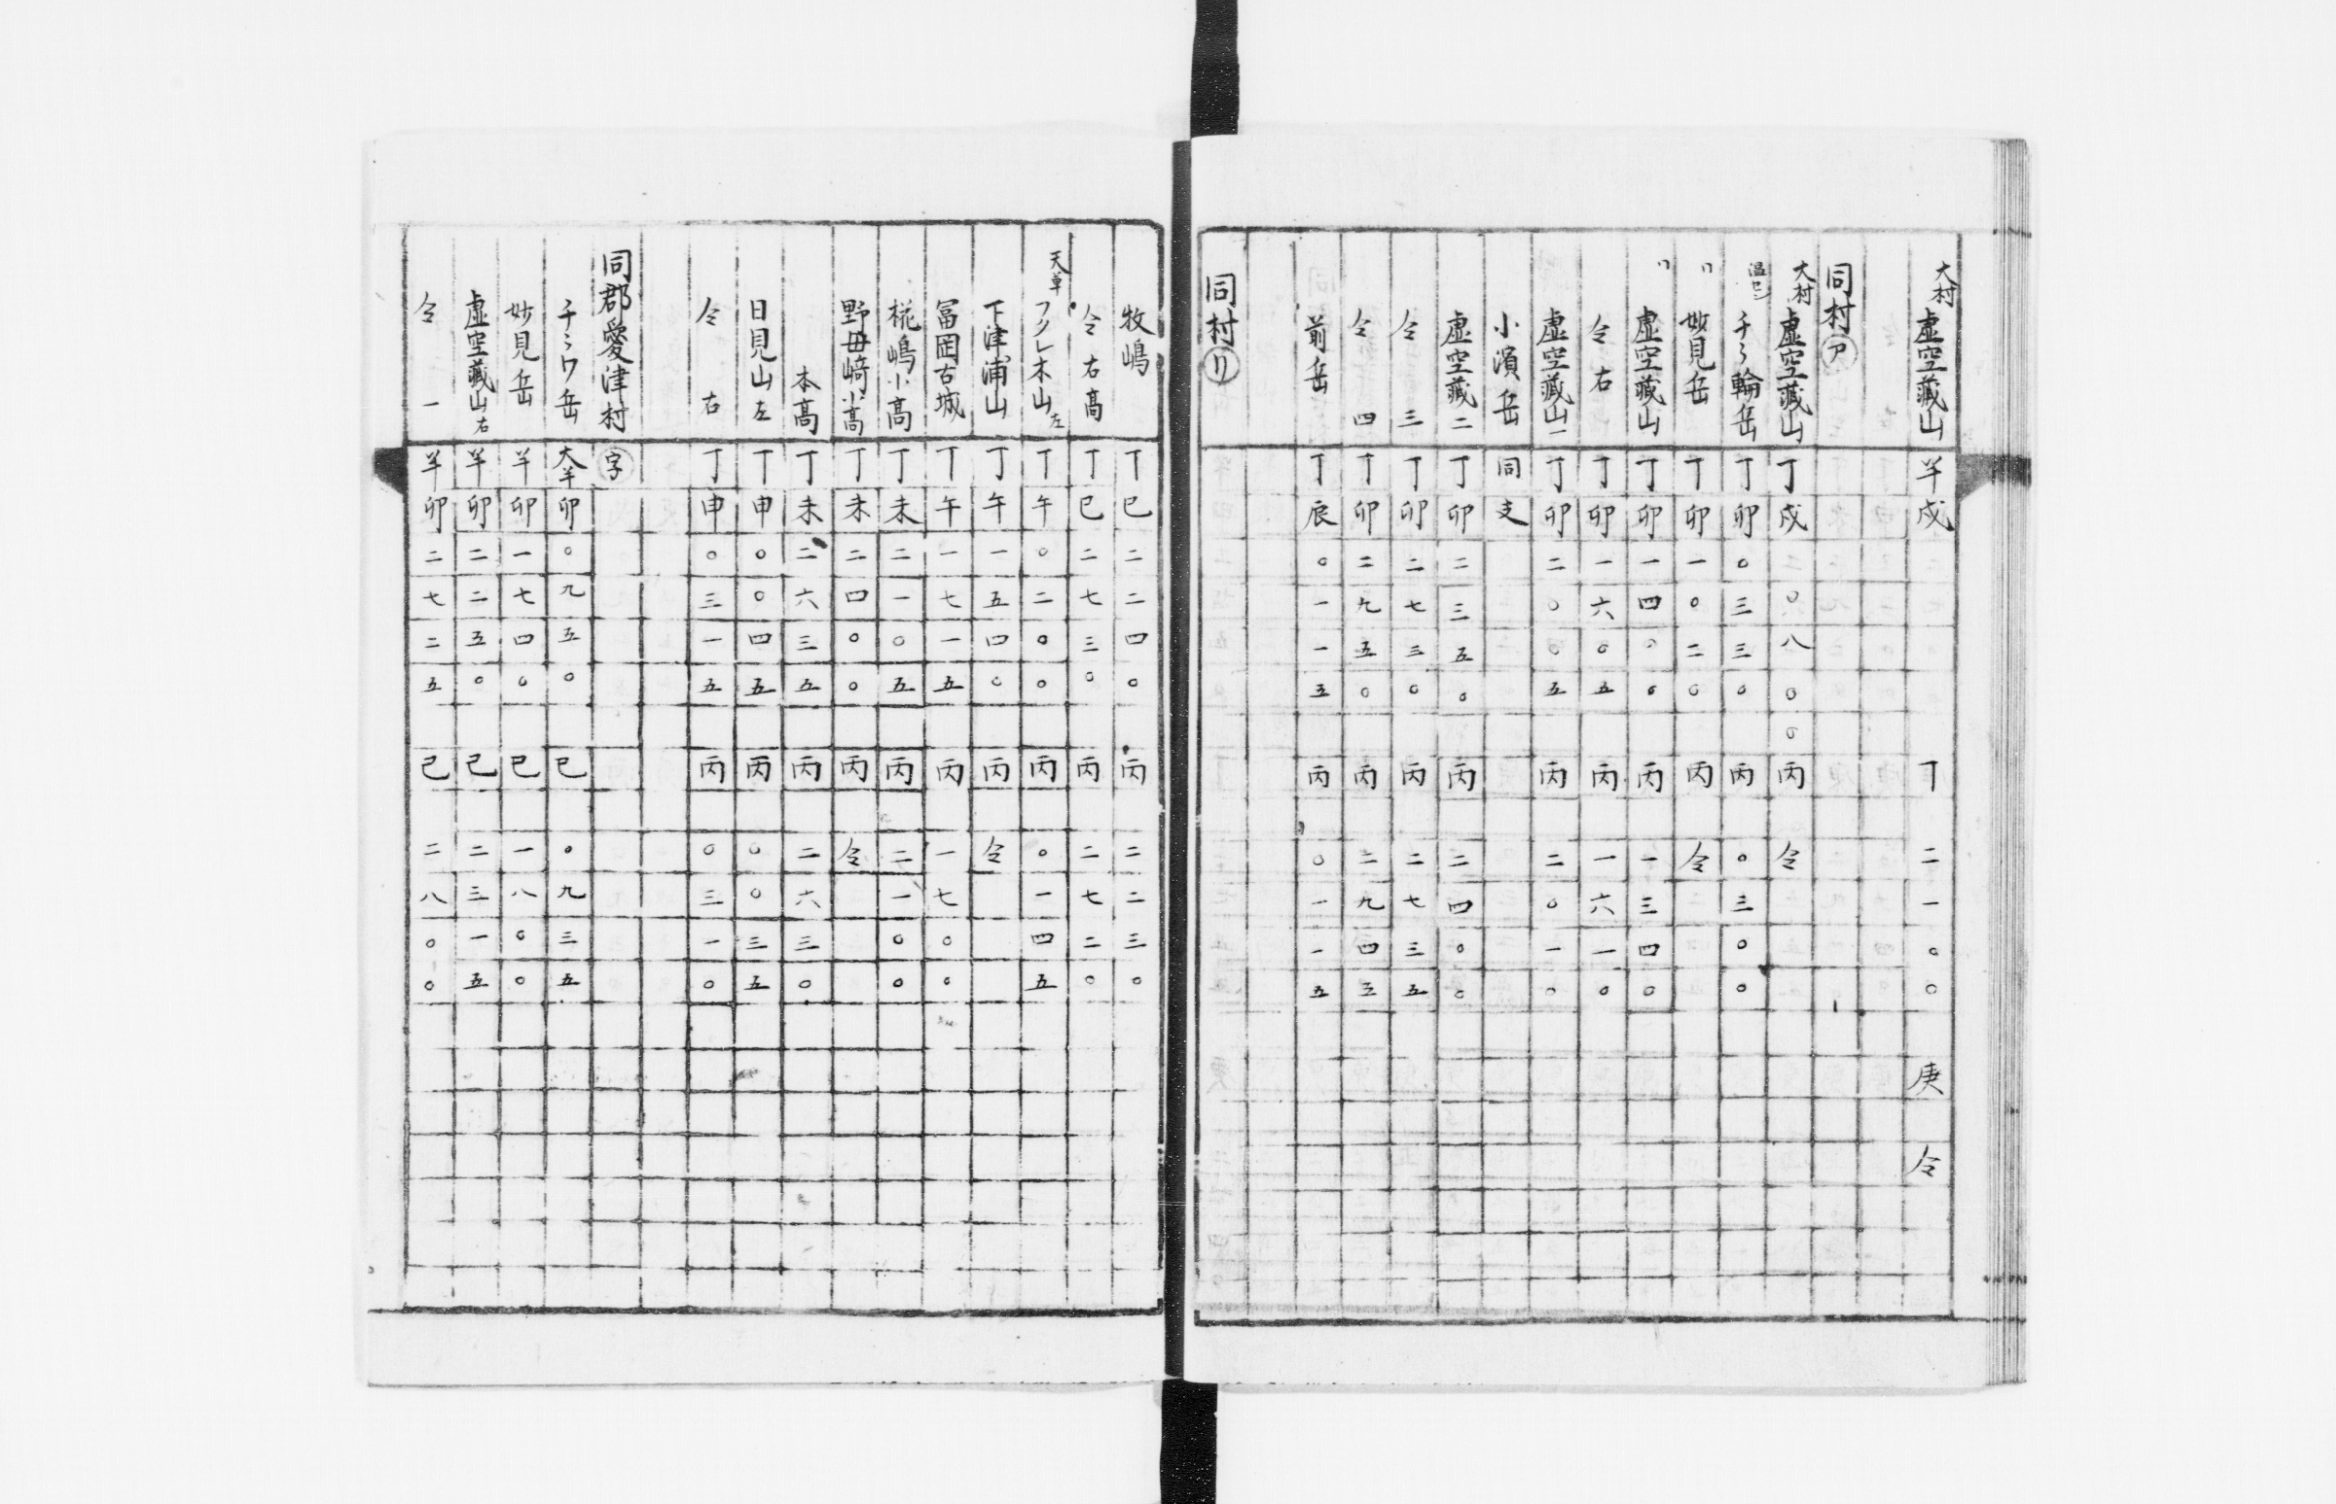 大村 虚空藏山 羊 戌 丁 二一〇〇 庚 仝
同村 ㋐
大村 虚空藏山 丁 戌 二〇八〇〇 丙 仝
温セン 千々輪岳 丁 卯 〇三三〇 丙 〇三〇〇
〃 妙見岳 丁 卯 一〇二〇 丙 仝
〃 虚空藏山 丁 卯 一四〇〇 丙 一三四〇
仝 右 丁 卯 一六〇五 丙 一六一〇
虚空藏山 一 丁 卯 二〇〇五 丙 二〇一〇
小濱岳 同 支
虚空藏 二 丁 卯 二三五〇 丙 二四〇〇
仝 三 丁 卯 二七三〇 丙 二七三五
仝 四 丁 卯 二九五〇 丙 二九四五
前岳 丁 辰 〇一一五 丙 〇一一五
同村 ㋷
牧嶋 丁 巳 二二四〇 丙 二二三〇
仝 右高 丁 巳 二七三〇 丙 二七二〇
天草 フクレ木山 左 丁 午 〇二〇〇 丙 〇一四五
下津浦山 丁 午 一五四〇 丙 仝
冨岡古城 丁 午 一七一五 丙 一七〇〇
椛嶋小高 丁 未 二一〇五 丙 二一〇〇
野母﨑小高 丁 未 二四〇〇 丙 仝
本髙 丁 未 二六三五 丙 二六三〇
日見山 左 丁 申 〇〇四五 丙 〇〇三五
仝 右 丁 申 〇三一五 丙 〇三一〇
同郡愛津村 字
千ミワ岳 大羊 卯 〇九五〇 巳 〇九三五
妙見岳 羊 卯 一七四〇 巳 一八〇〇
虚空藏山 右 羊 卯 二二五〇 巳 二三一五
仝 一 羊 卯 二七二五 巳 二八〇〇